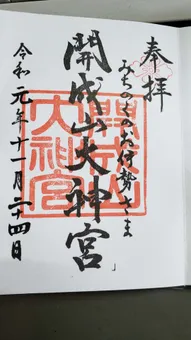 奉拝
みちのくのお伊勢さま
開成山大神宮
開成山
大神宮
令和元年十一月二十四日